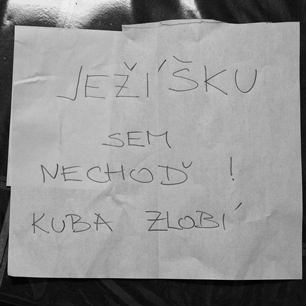 JEŽÍŠKU
SEM
NECHOĎ !
KUBA ZLOBÍ